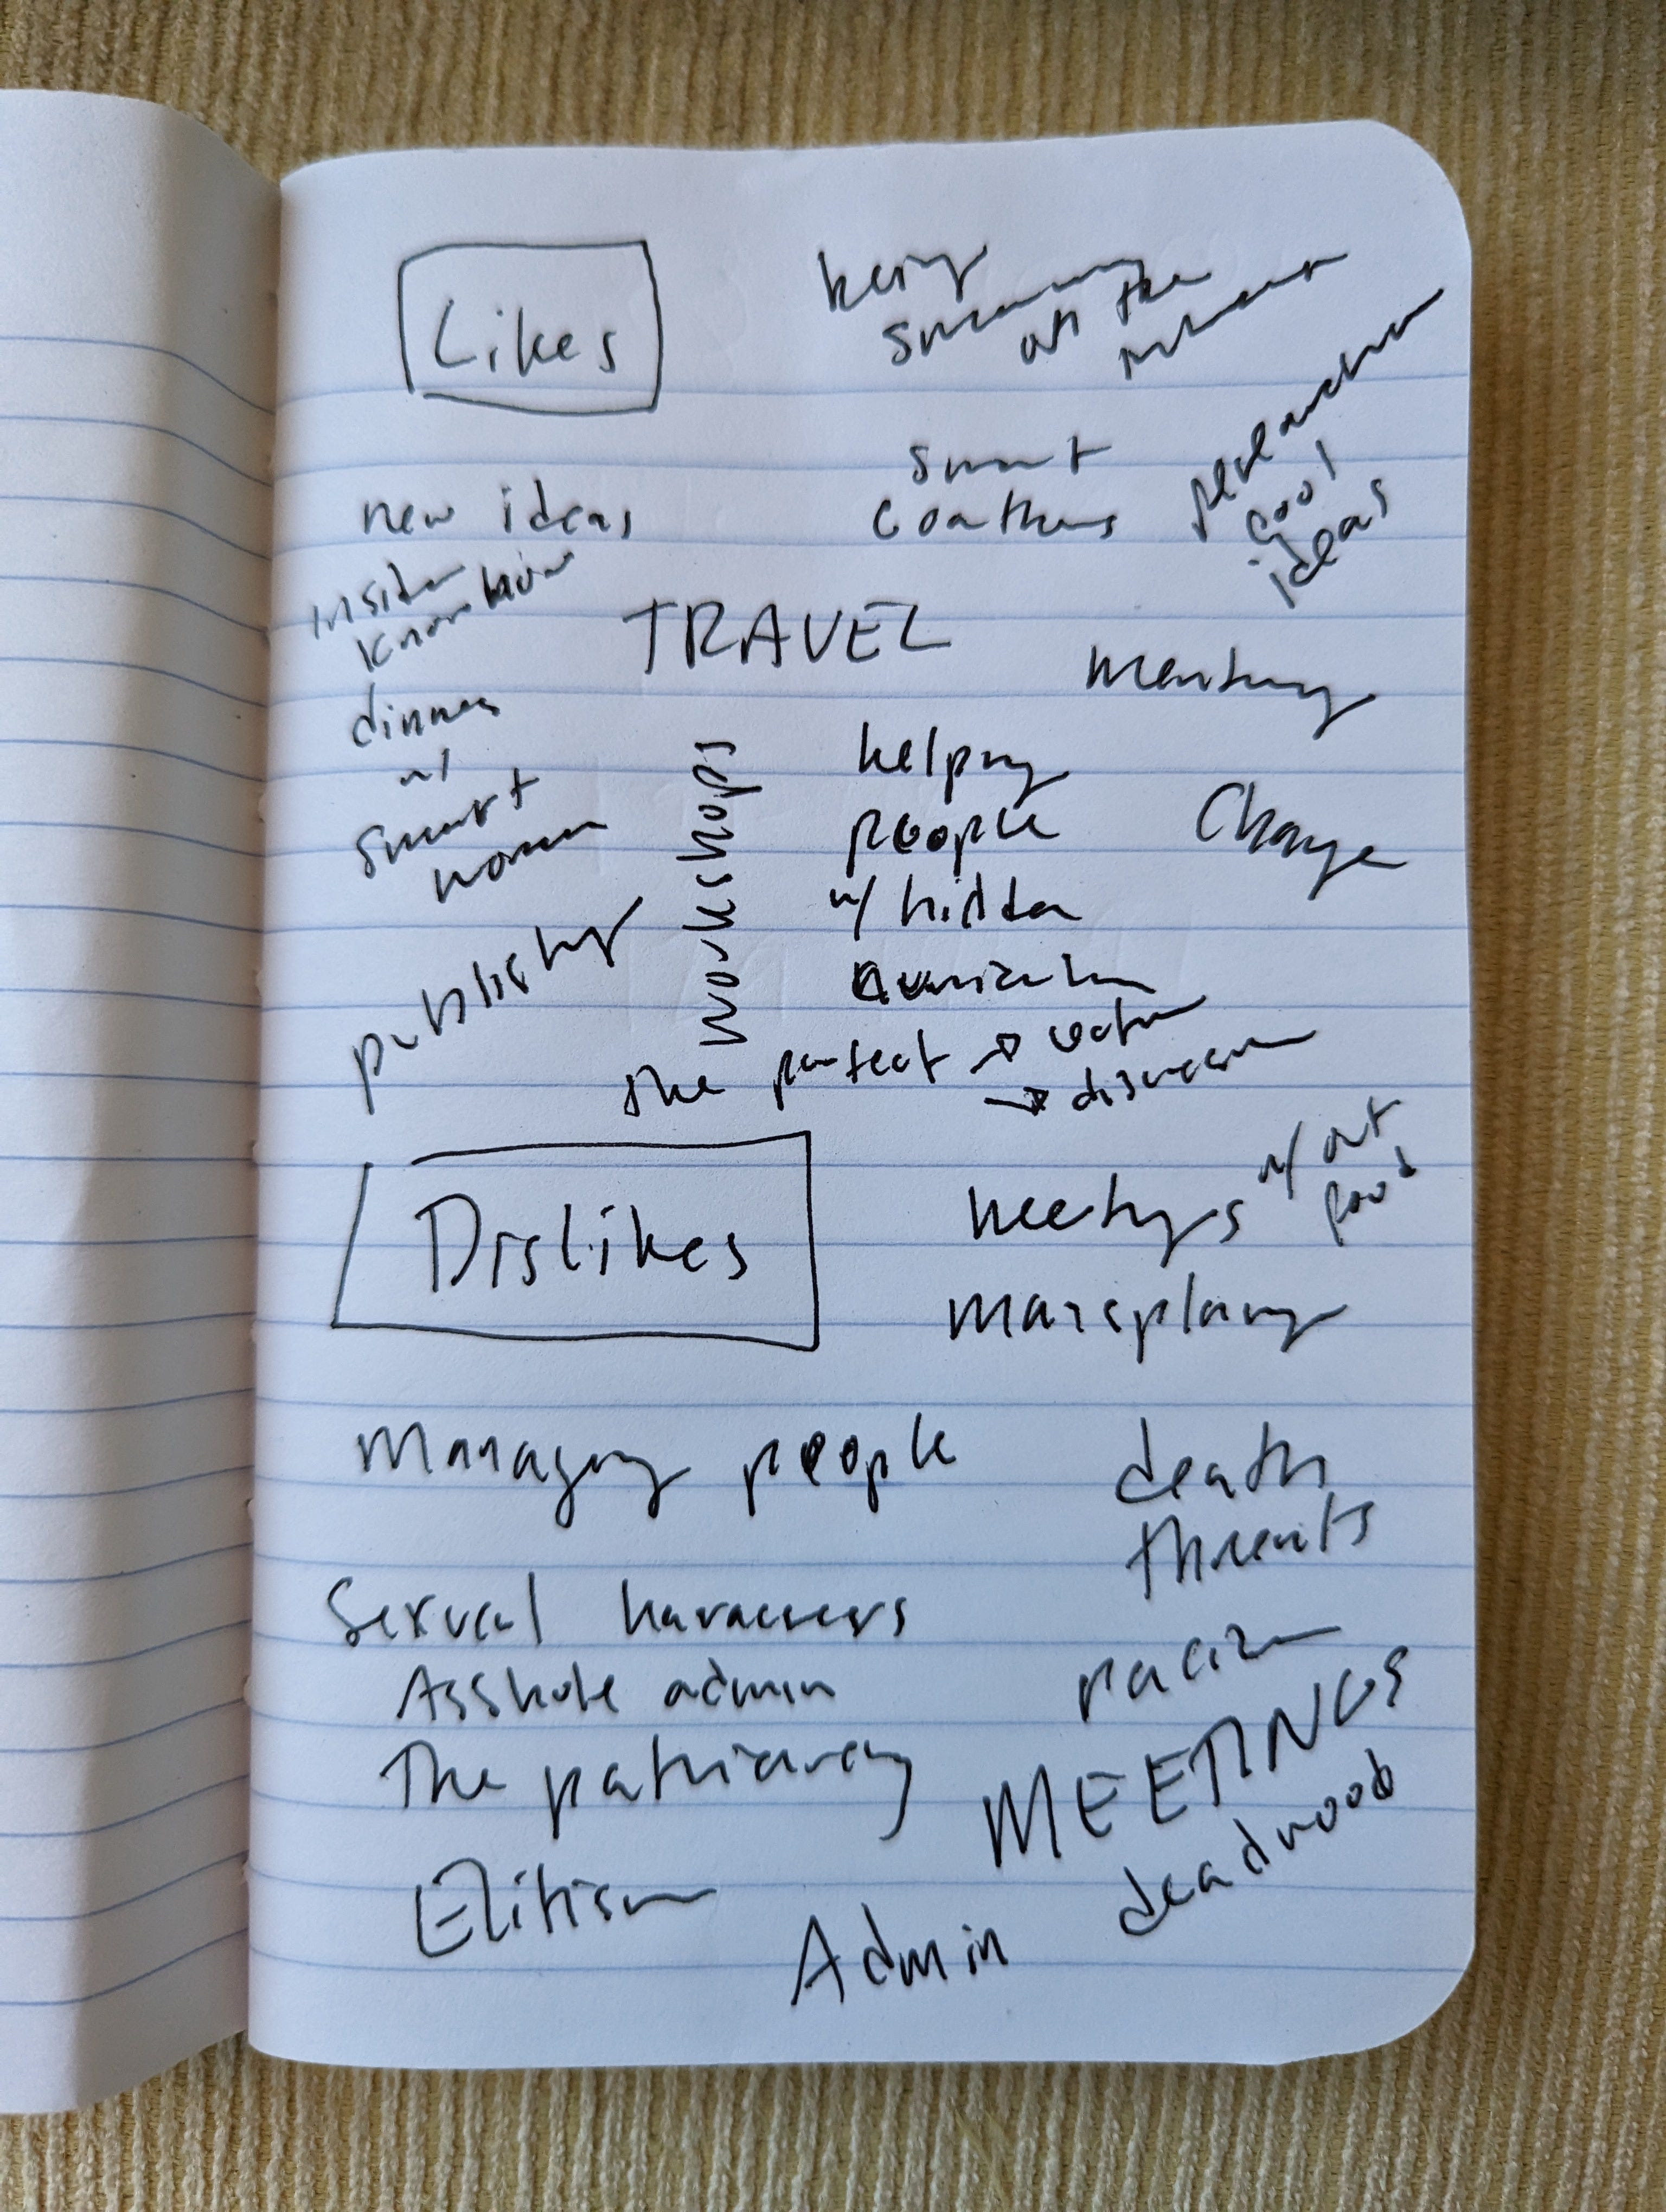 Likes
being
on the
new ideas
smart
cool
ideas
insider
TRAVEL
mentoring
dinners
w/
smart
women
workshops
helping
people
w/ hidden
curriculum
Change
publishing
the perfect → lecture
→ discussion
Dislikes
meetings w/out
food
mansplaining
Managing people
death
threats
Sexual harassers
Asshole admin
racism
The patriarchy
MEETINGS
deadwood
Elitism
Admin